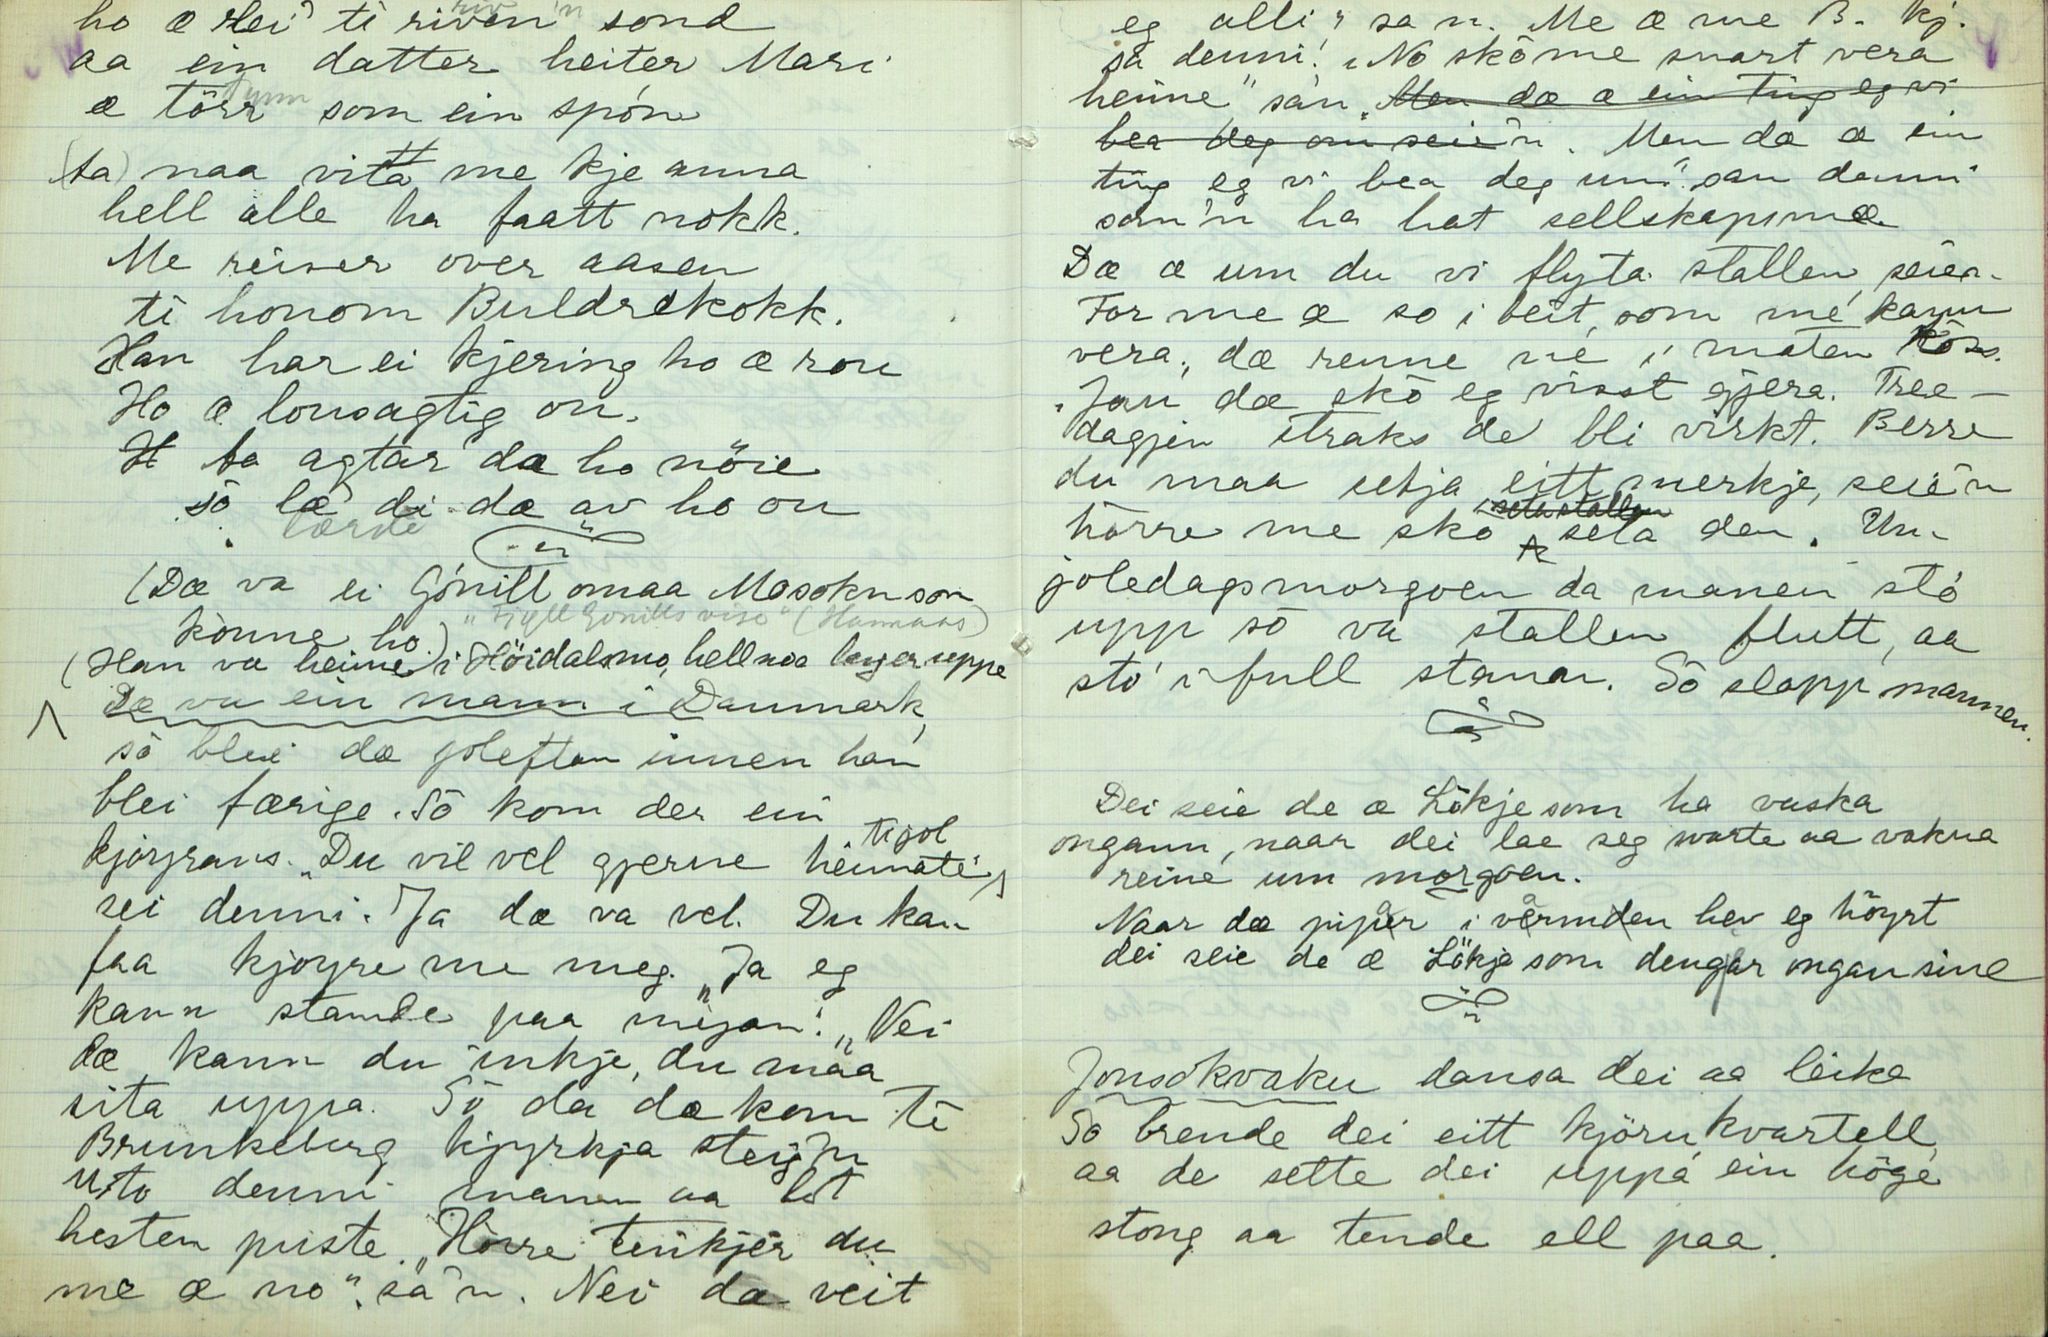 ho æ lei ti riven sond
aa ein datter heiter Mari
tynn
æ törr som ein spón
(ta) naa vitta me kje anna
hell alle ha faatt nokk.
Me reiser over aasen
ti honom Buldrekokk.
Han har ei kjering ho æ rou
Ho æ lousagtig on.
ta agtar dæ ho nöie
sö læ di dæ av ho on
lærde
(Dæ va ei Gónill omaa Mosokn son
könne ho)
"Fyll Gonills vise" (Hamaas)
(Han va heime) i Höidalsmo, hell noa lenger uppe
Dæ va ein mann i Danmark,
sö blei dæ joleftan innen han
blei færige. Sö kom der ein
kjöyrans. "Du vil vel gjerne heimate
ti jol
sei denni. Ja dæ va vel. Du kan
faa kjoyre me meg. "Ja eg
kann stande paa meijan". "Nei
dæ kann du inkje, du maa
sita uppa. Sö da dæ kom ti
Brunkeberg kjyrkja steig'n
denni mann aa lot
hesten puste. "Hörre tenkjer du
me æ no". sa'n. Nei dæ veit
eg alli", sa n. Me æ me B. kj.
sa denni. "No skö me snart vera
heime" sa'n. Men dæ æ ein ting eg vi
bea deg om seie'n. Men dæ æ ein
ting eg vi bea deg um". san denni
som'n ha hat sellskap mæ
Dæ æ um du vi flyta stallen, seien.
For me æ so i beit, som me kann
vera, dæ renne ne i maten
"Jau dæ skö eg visst gjera. Tree-
dagjen straks de bli virkt. Berre
du maa setja eitt merkje, seie'n
hörre me skö seta den. Un-
joledagsmorgoen da manen stó
upp sö va stallen flutt, aa
stó i full stann. Sö slapp mannen.
Dei seie de æ Lökje som ha vaska
ongann, naar dei lae seg svarte aa vakna
reine um morgoen.
Naar dæ pipar i varmen hev eg höyrt
dei seie de æ Lökje som dengjar ongan sine
Jonsokvaku dansa dei aa leika
Sö brende dei eitt kjörukvartell,
aa de sette dei uppá ein höge
stong aa tende ell paa.